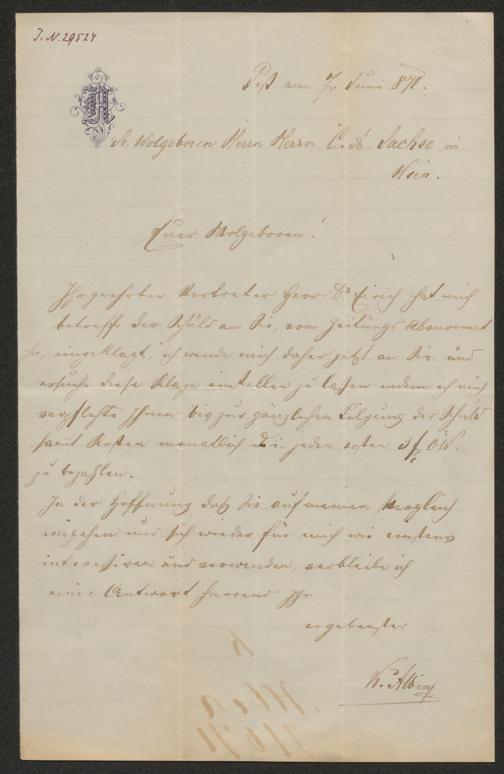 J.N. 29524
H
Pest am 7. Juni 871.
Sr. Wolgeboren Herrn Herrn C. A. Sachse in
Wien.
Euer Wolgeboren!
Ihr geehrter Vertreter Herr Dr. Eirich hat mich
betreffs der Schuld an Sie, vom Zeitungs Abonnement
eingeklagt, ich wende mich daher jetzt an Sie und
ersuche diese Klage einstellen zu lassen indem ich mich
verpflichte Ihnen bis zur gänzlichen Tilgung der Schuld
samt Kosten monatlich d. i. jeden ersten, 3 f ÖW.
zu bezahlen.
In der Hoffnung daß Sie auf meinen Vergleich
eingehen und sich wieder für mich wie einstens
interessiren und verwenden, verbleibe ich
einer Antwort harrend Ihr
ergebenster
K. Albin